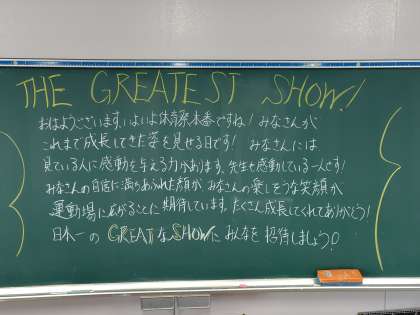 THE GREATEST SHOW!
おはようございます。いよいよ体育祭本番ですね！みなさんが
これまで成長してきた姿を見せる日です！みなさんには
見ている人に感動を与える力があります。先生も感動している一人です！
みなさんの自信に満ちあふれた顔が みなさんの楽しそうな笑顔が
運動場に広がることに期待しています。たくさん成長してくれてありがとう！
日本一の GREATなSHOWに みんなを招待しましょう！